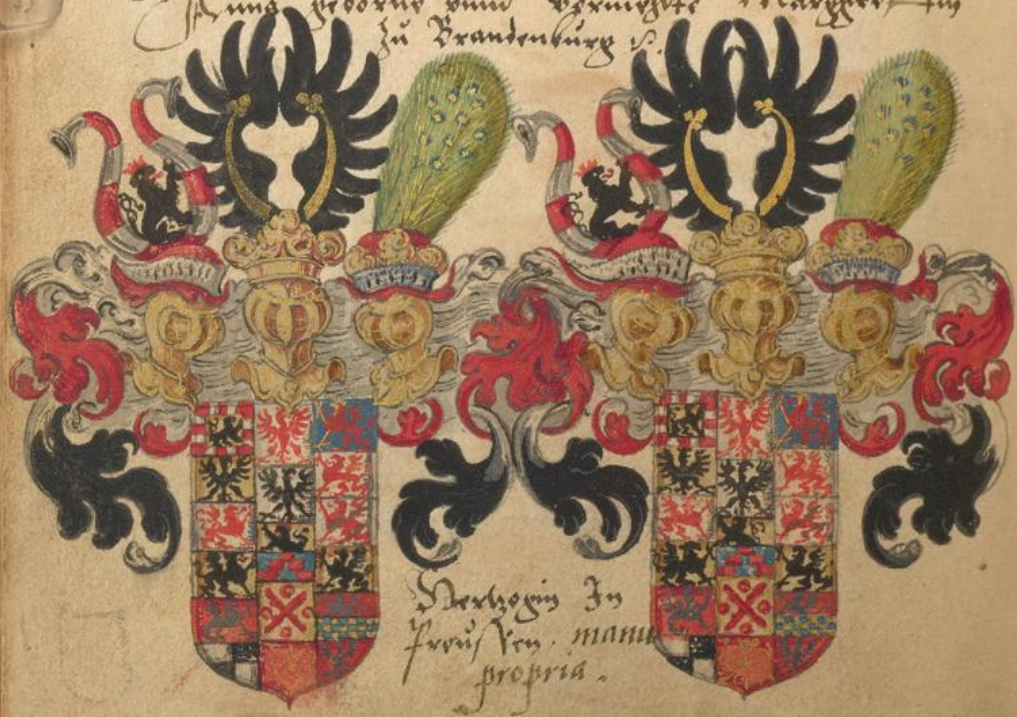 Anna geborne vnnd vermehlte Marggreffin
zu Brandenburg
Hertzogin In
Preussen. manu
propria.